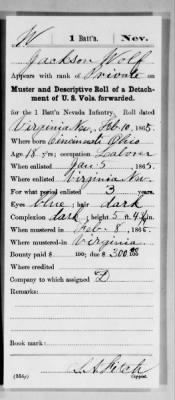 W | 1 Batt'n. | Nev.
Jackson Wolf
Appears with rank of Private on
Muster and Descriptive Roll of a Detach-
ment of U. S. Vols. forwarded.
for the 1 Batt'n Nevada Infantry. Roll dated
Virginia Nev, Feb 10, 1865.
Where born Cincinnati Ohio
Age 18 y'rs; occupation Laborer
When enlisted Jan 5, 1865.
Where enlisted Virginia Nev.
For what period enlisted 3 years.
Eyes blue; hair dark
Complexion dark; height 5 ft. 4 in.
When mustered in Feb 8, 1865.
Where mustered in Virginia
Bounty paid $ 100; due $ 300 00 100
Where credited
Company to which assigned D
Remarks:
Book mark:
(356g) Copyist.